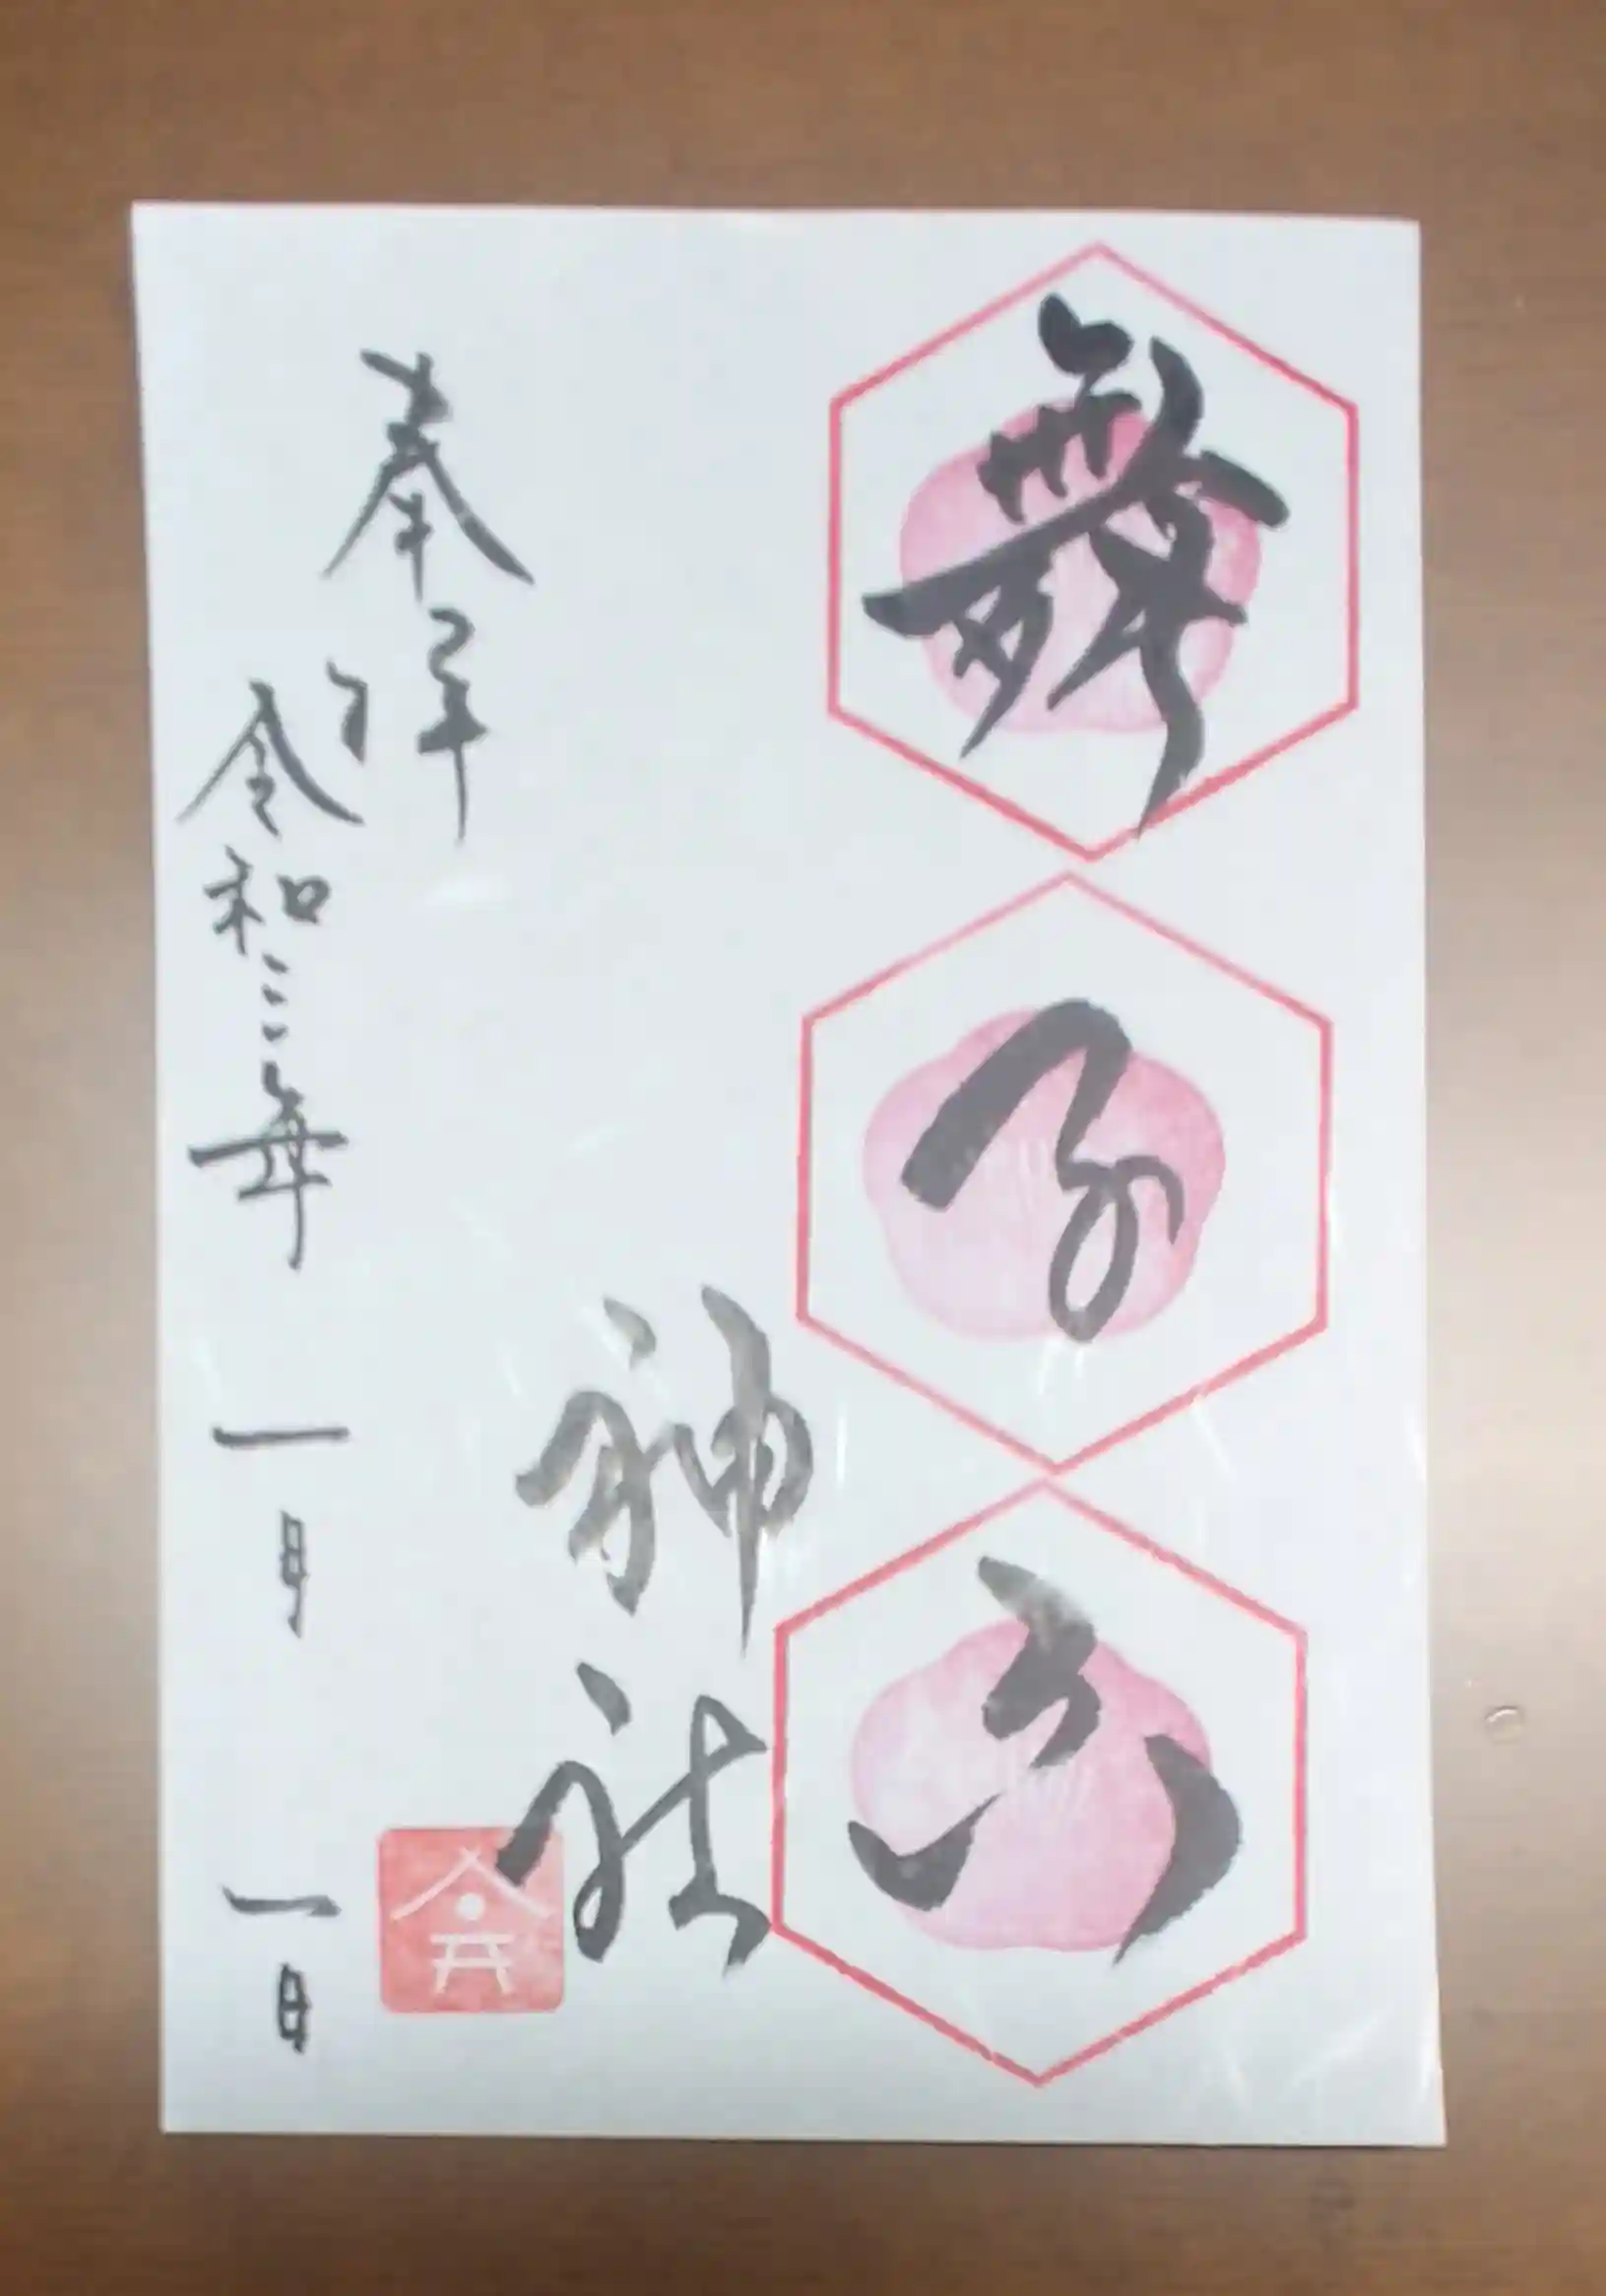 舞子六
神社
奉拝
令和三年一月一日